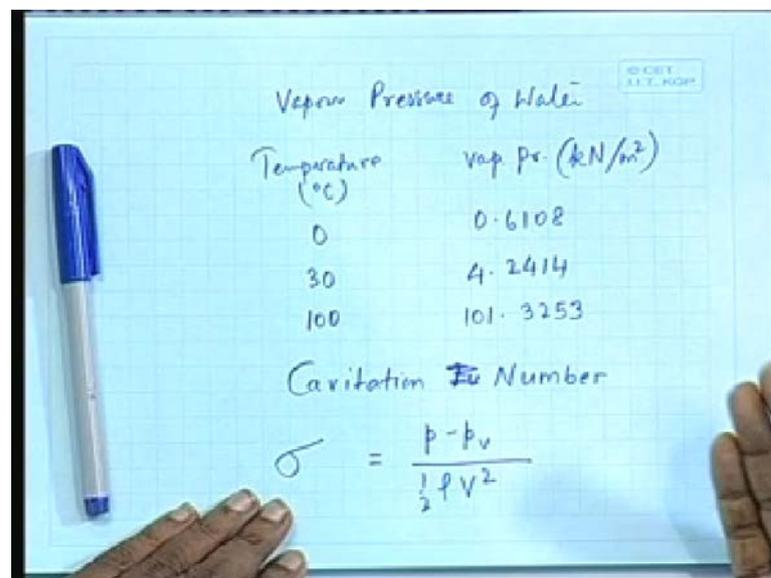 © CET
I.I.T. KGP
Vapour Pressure of Water
Temperature vap pr. (kN/m²)
(°C)
0 0.6108
30 4.2414
100 101.3253
Cavitation Number
σ = p - pv / ½ ρ V²